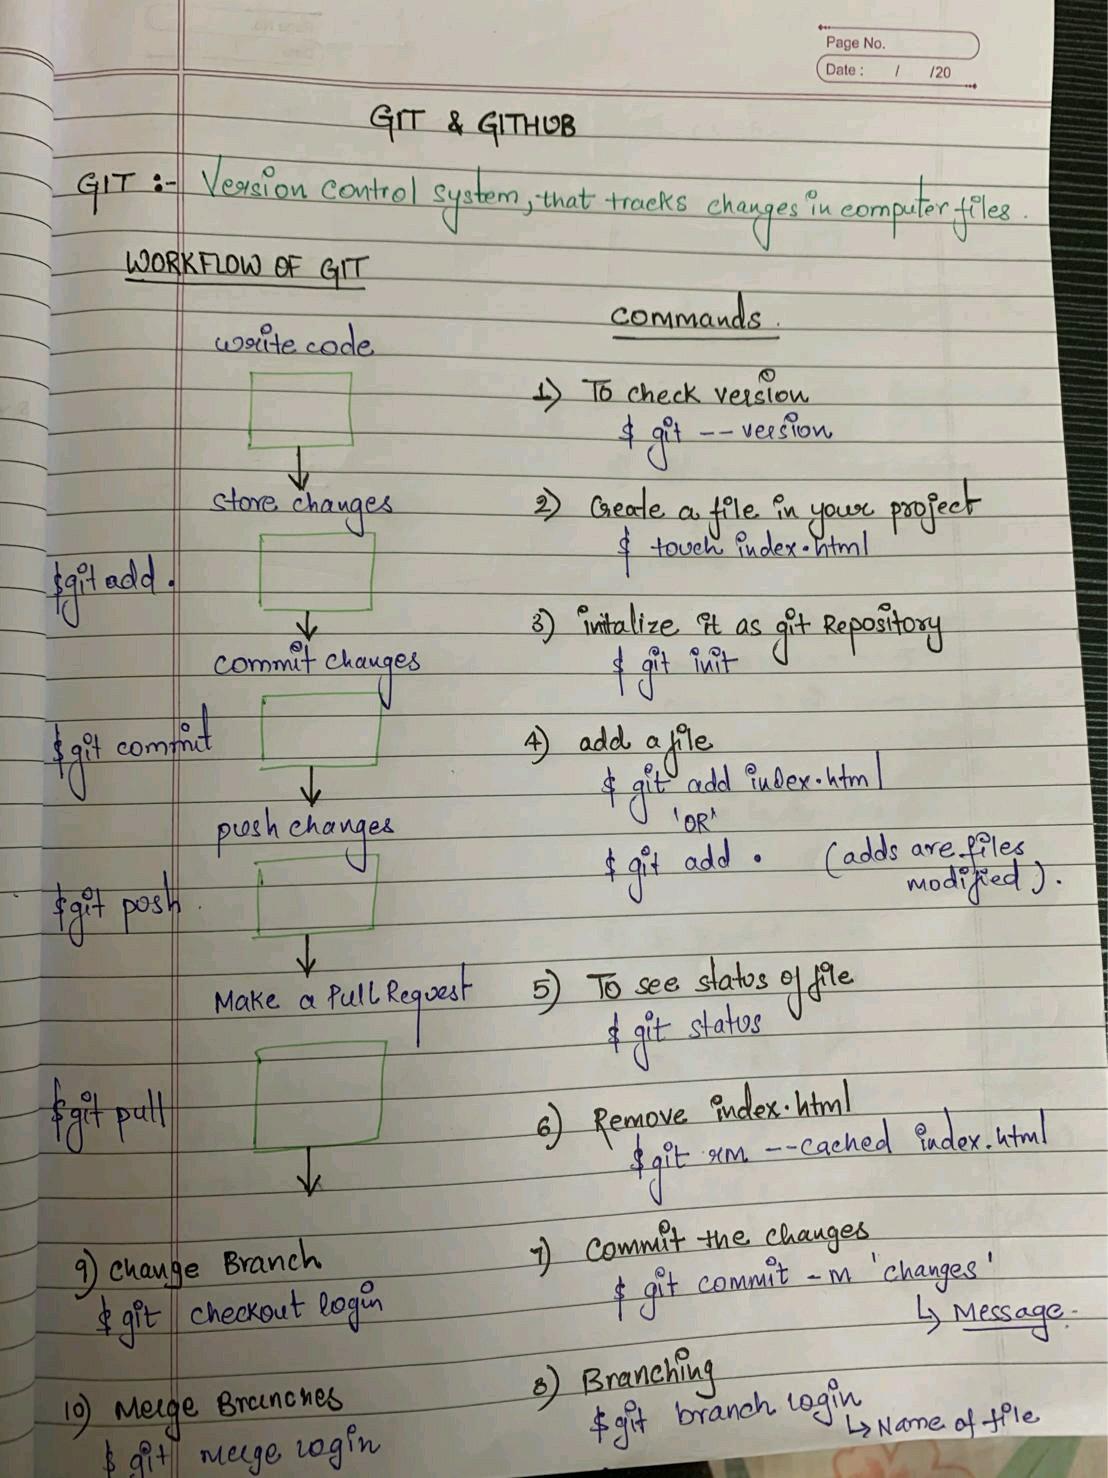 Page No.
Date : / /20
GIT & GITHUB
GIT :- Version control system, that tracks changes in computer files.
WORKFLOW OF GIT
write code
store changes
$git add .
commit changes
$git commit
push changes
$git posh.
Make a Pull Request
$git pull
commands.
1) To check version
$ git -- version
2) Create a file in your project
$ touch index.html
3) initalize it as git Repository
$ git init
4) add a file
$ git add index.html
'OR'
$ git add . (adds are files
modified).
5) To see status of file
$ git status
6) Remove index.html
$git rm --cached index.html
7) Commit the changes
$ git commit -m 'changes'
↳ Message.
8) Branching
$git branch login
↳ Name of file
9) change Branch
$ git checkout login
10) Merge Branches
$ git merge login